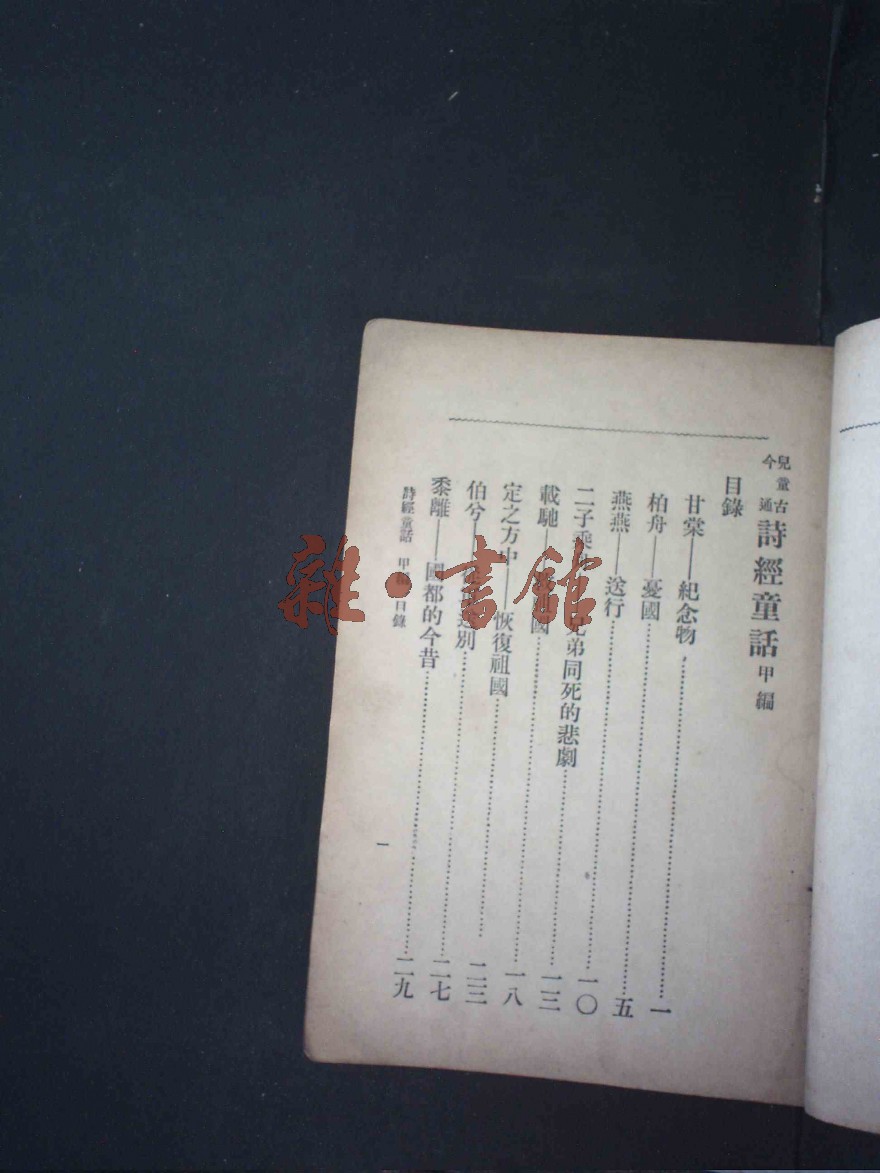 兒童古今通 詩經童話 甲編
目錄
甘棠——紀念物……一
柏舟——憂國……五
燕燕——送行……一〇
二子乘 兄弟同死的悲劇……一三
載馳— 國……一八
定之方中——恢復祖國……二三
伯兮— 送別……二七
黍離——國都的今昔……二九
詩經童話 甲編 目錄
一
雜·書館